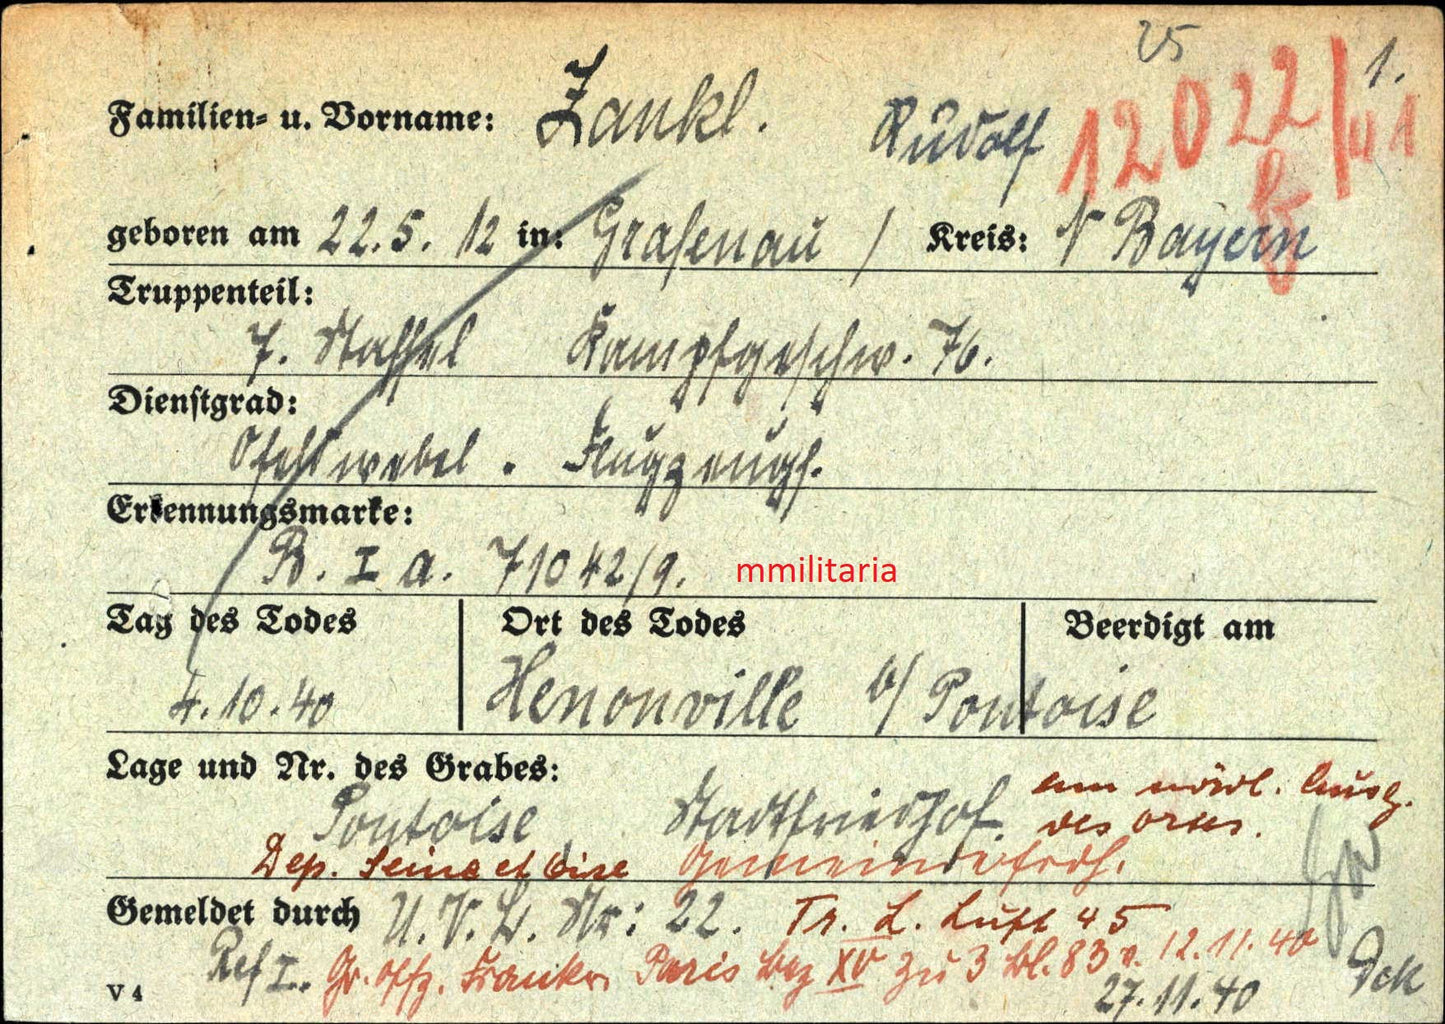 25
1.
Familien= u. Vorname: Zankl. Rudolf 12022/41
geboren am 22.5.12 in: Grafenau / Kreis: N Bayern
Truppenteil:
7. Staffel Kampfgeschw. 76.
Dienstgrad:
Ofeldwebel. Flugzeugf.
Erkennungsmarke:
B. I a. 71042/9.
mmilitaria
Tag des Todes Ort des Todes Beerdigt am
4.10.40 Henonville b/ Pontoise
Lage und Nr. des Grabes:
am nördl. Ausg.
Pontoise Stadtfriedhof. des Ortes.
Dep. Seine et Oise Gemeindefrdh.
Gemeldet durch U.V.L. Nr: 22. Tr. L. Luft 45
Ref I. Gr. Offz. Frankr. Paris bez XV zu 3 bl. 83 v. 12.11.40
V 4 27.11.40